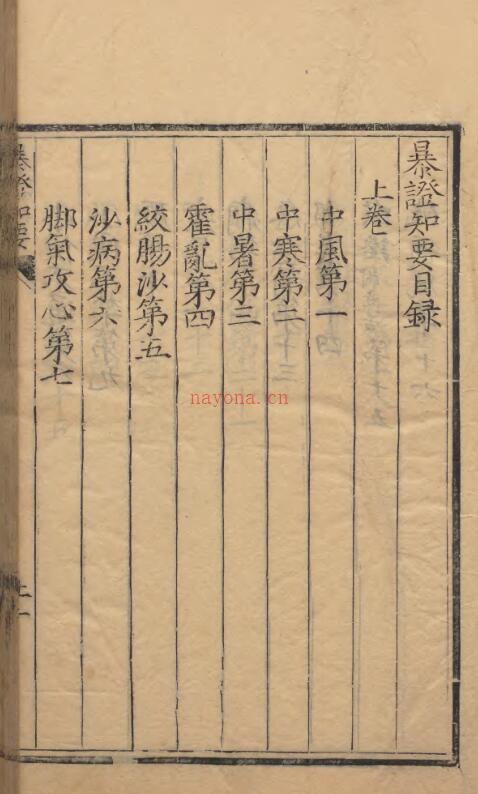 暴證知要目録
上卷
中風第一
中寒第二
中暑第三
霍亂第四
絞腸沙第五
沙病第六
脚氣攻心第七
nayona.cn